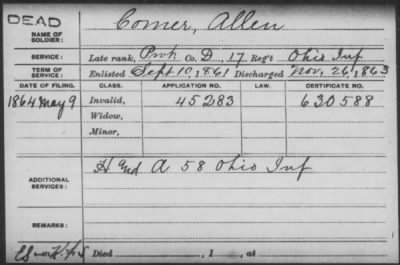 DEAD
NAME OF SOLDIER: Comer, Allen
SERVICE: Late rank, Pvt Co. D, 17 Reg't Ohio Inf
TERM OF SERVICE: Enlisted Sept 10, 1861 Discharged Nov. 26, 1863
DATE OF FILING. CLASS. APPLICATION NO. LAW. CERTIFICATE NO.
1864 May 9 Invalid, 45283 630588
Widow,
Minor,
ADDITIONAL SERVICES: H and A 58 Ohio Inf
REMARKS:
Died , 1 , at